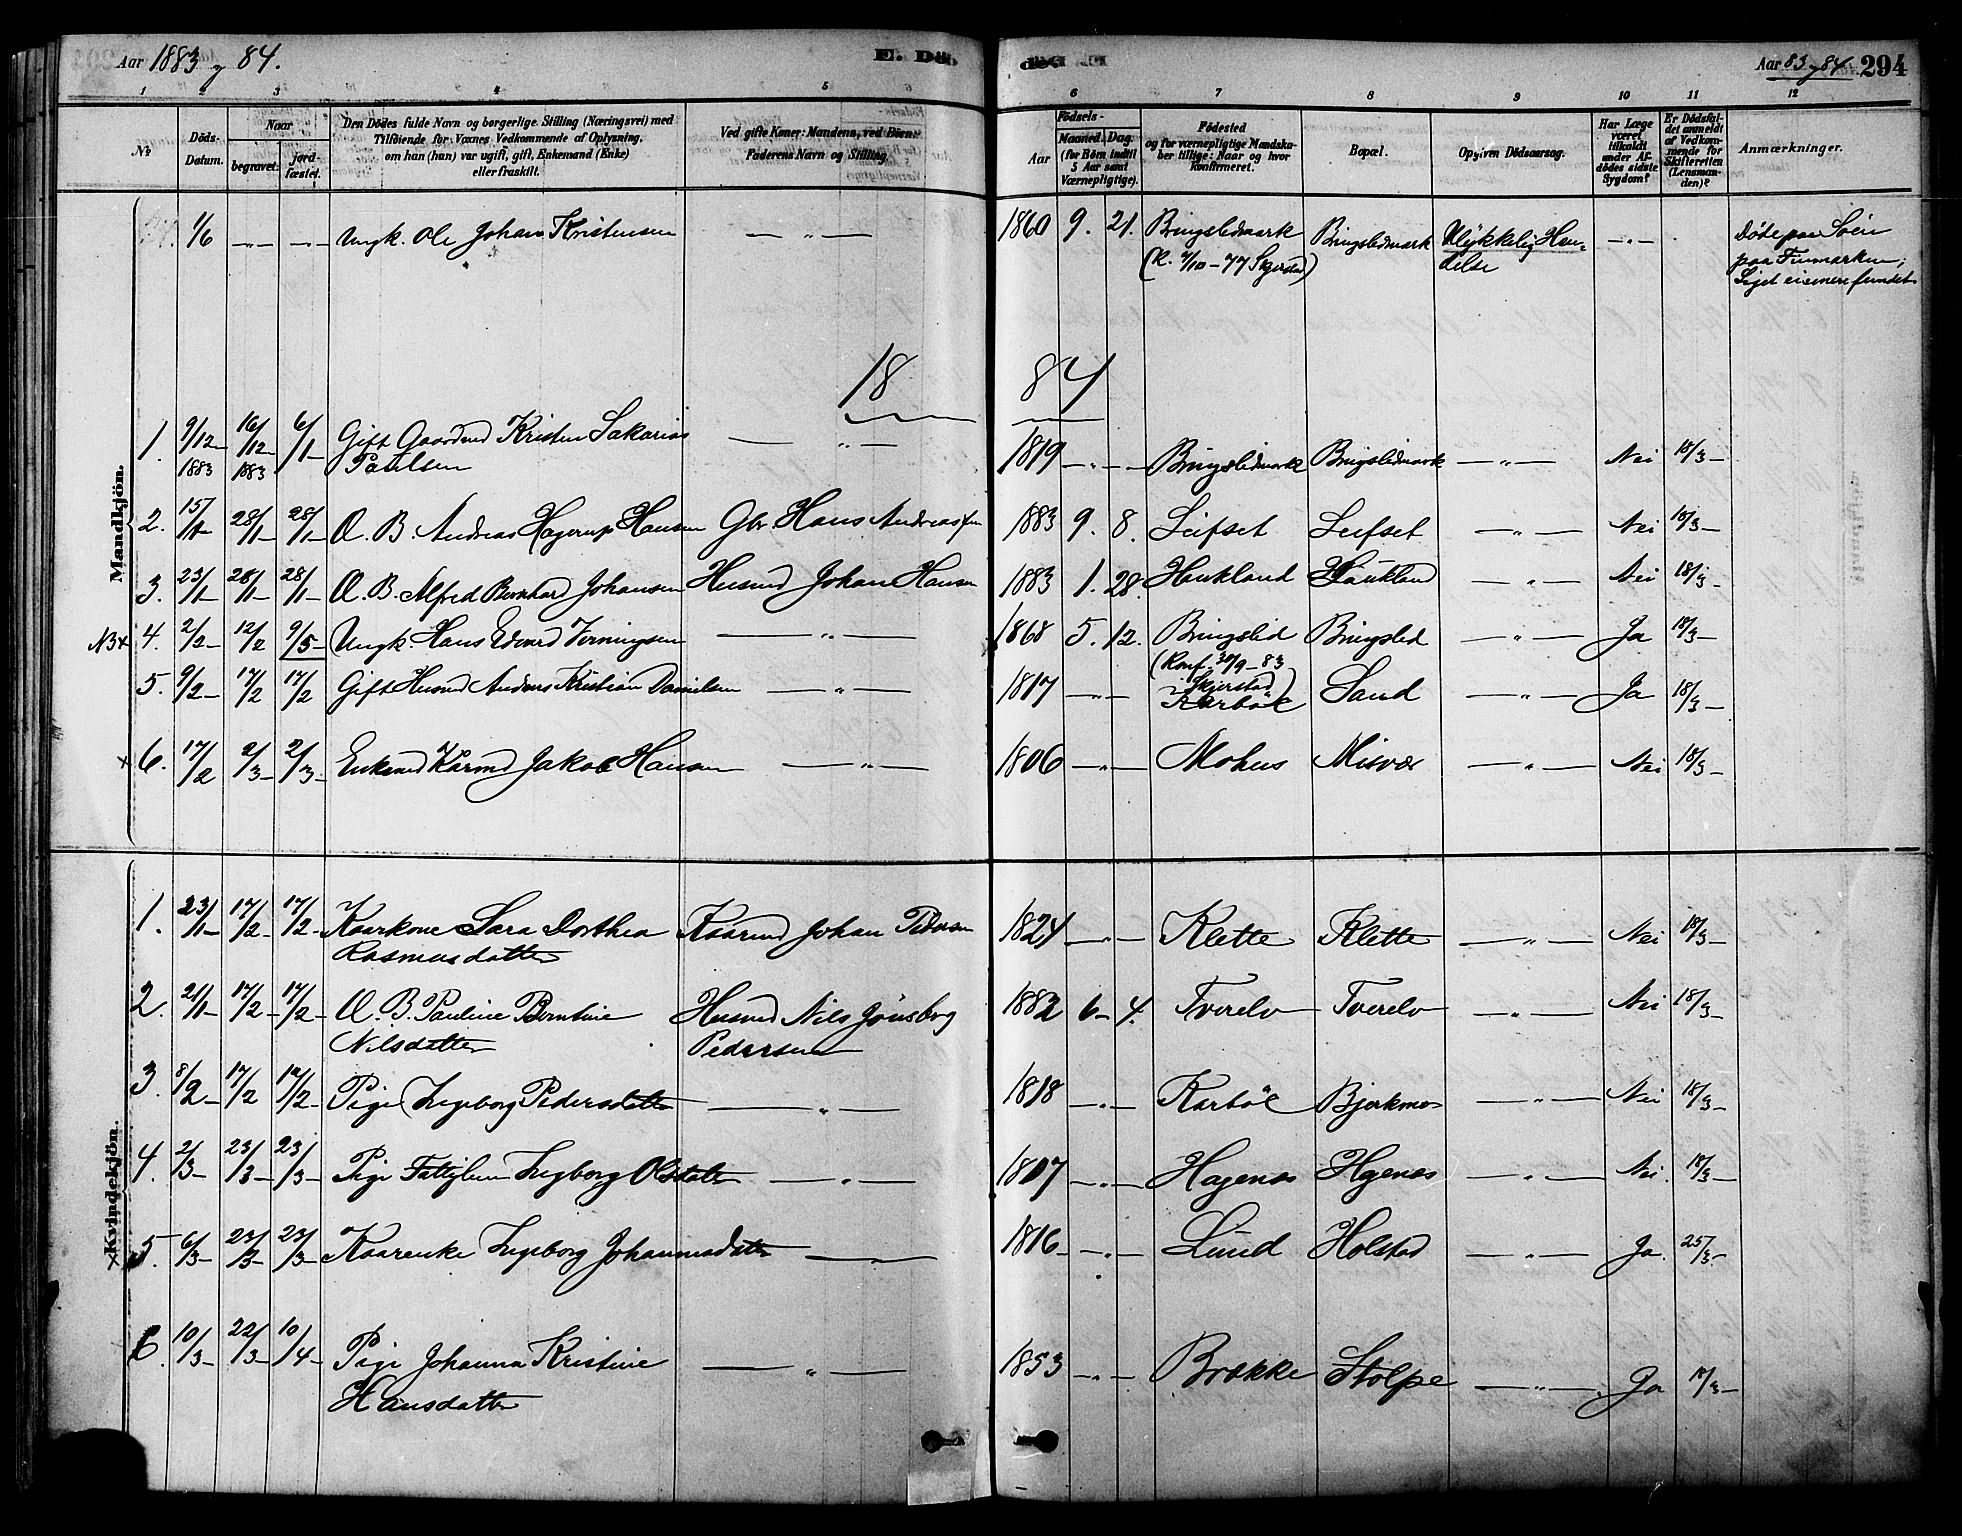 Aar 1883 og 84.
E. Döde
Aar 83 og 84
294
1 2 3 4 5 6 7 8 9 10 11 12
No
Döds-Datum.
Naar
begravet.
jordfæstet.
Den Dödes fulde Navn og borgerlige Stilling (Næringsvei) med
Tilföiende for Voxnes Vedkommende af Oplysning,
om han (hun) var ugift, gift, Enkemand (Enke)
eller fraskilt.
Ved gifte Koner: Mandens, ved Börn:
Faderens Navn og Stilling.
Födsels-
Aar
Maaned. Dag.
(for Börn indtil
5 Aar samt
Værnepligtige).
Födested
og for værnepligtige Mandska-
ber tillige: Naar og hvor
konfirmeret.
Bopæl.
Opgiven Dödsaarsag.
Har Læge
været
tilkaldt
under Af-
dödes sidste
Sygdom?
Er Dödsfal-
det anmeldt
af Vedkom-
mende for
Skifteretten
(Lensman-
den)?
Anmærkninger.
Mandkjön.
1/6 Ungk. Ole Johan Kristensen — " — 1860 9. 21. Bringslidmark Bringslidmark Ulykkelig Hæn- — " — Döde paa Söen
(K. 7/10 - 77 Skjerstad) delse paa Finmarken;
Liget ei mere fundet
18 84
1. 9/12 1883 16/12 1883 6/1 Gift Gaardmd Kristen Sakarias — " — 1819 — " — Bringslidmark Bringslidmark — " — Nei 18/3
Paulsen
2. 15/1 28/1 28/1 Æ. B. Andreas Hagerup Hansen Gbr. Hans Andreassen 1883 9. 8. Leifset Leifset — " — Nei 18/3
3. 23/1 28/1 28/1 Æ. B. Alfred Bernhard Johansen Husmd Johan Hansen 1883 1. 28. Haukland Haukland — " — Nei 18/3
NB x 4. 2/2 12/2 9/5 Ungk. Hans Edvard Jerningsen — " — 1868 5. 12. Bringslid Bringslid — " — Ja 18/3
(Konf. 30/9 - 83
Skjerstad)
5. 9/2 17/2 17/2 Gift Husmd Anders Kristian Danielsen — " — 1817 — " — Karböl Sand — " — Ja 18/3
x 6. 17/2 2/3 2/3 Enkemd Kårmd Jakob Hansen — " — 1806 — " — Mohus Misvær — " — Nei 18/3
Kvindekjön.
1. 23/1 17/2 17/2 Kaarkone Sara Dorthea Kaarmd Johan Pedersen 1824 — " — Klette Klette — " — Nei 18/3
Rasmusdatter
2. 21/1 17/2 17/2 Æ. B. Pauline Berntine Husmd Nils Jönsberg 1882 6 4. Tverelv Tverelv — " — Nei 18/3
Nilsdatter Pedersen
3. 8/2 17/2 17/2 Pige Ingeborg Pedersdatter — " — 1818 — " — Karböl Bjerkmo — " — Nei 18/3
4. 2/3 23/3 23/3 Pige Fattiglem Ingborg Olsdatter — " — 1807 — " — Hagenæs Hgenæs — " — Nei. 18/3
x 5. 6/3 23/3 23/3 Kaarenke Ingeborg Johannesdatter — " — 1816 — " — Lund Holstad — " — Ja. 25/3
6. 10/3 22/3 10/4 Pige Johanna Kristine — " — 1853 — " — Brække Stolpe — " — Ja 18/3
Hansdatter